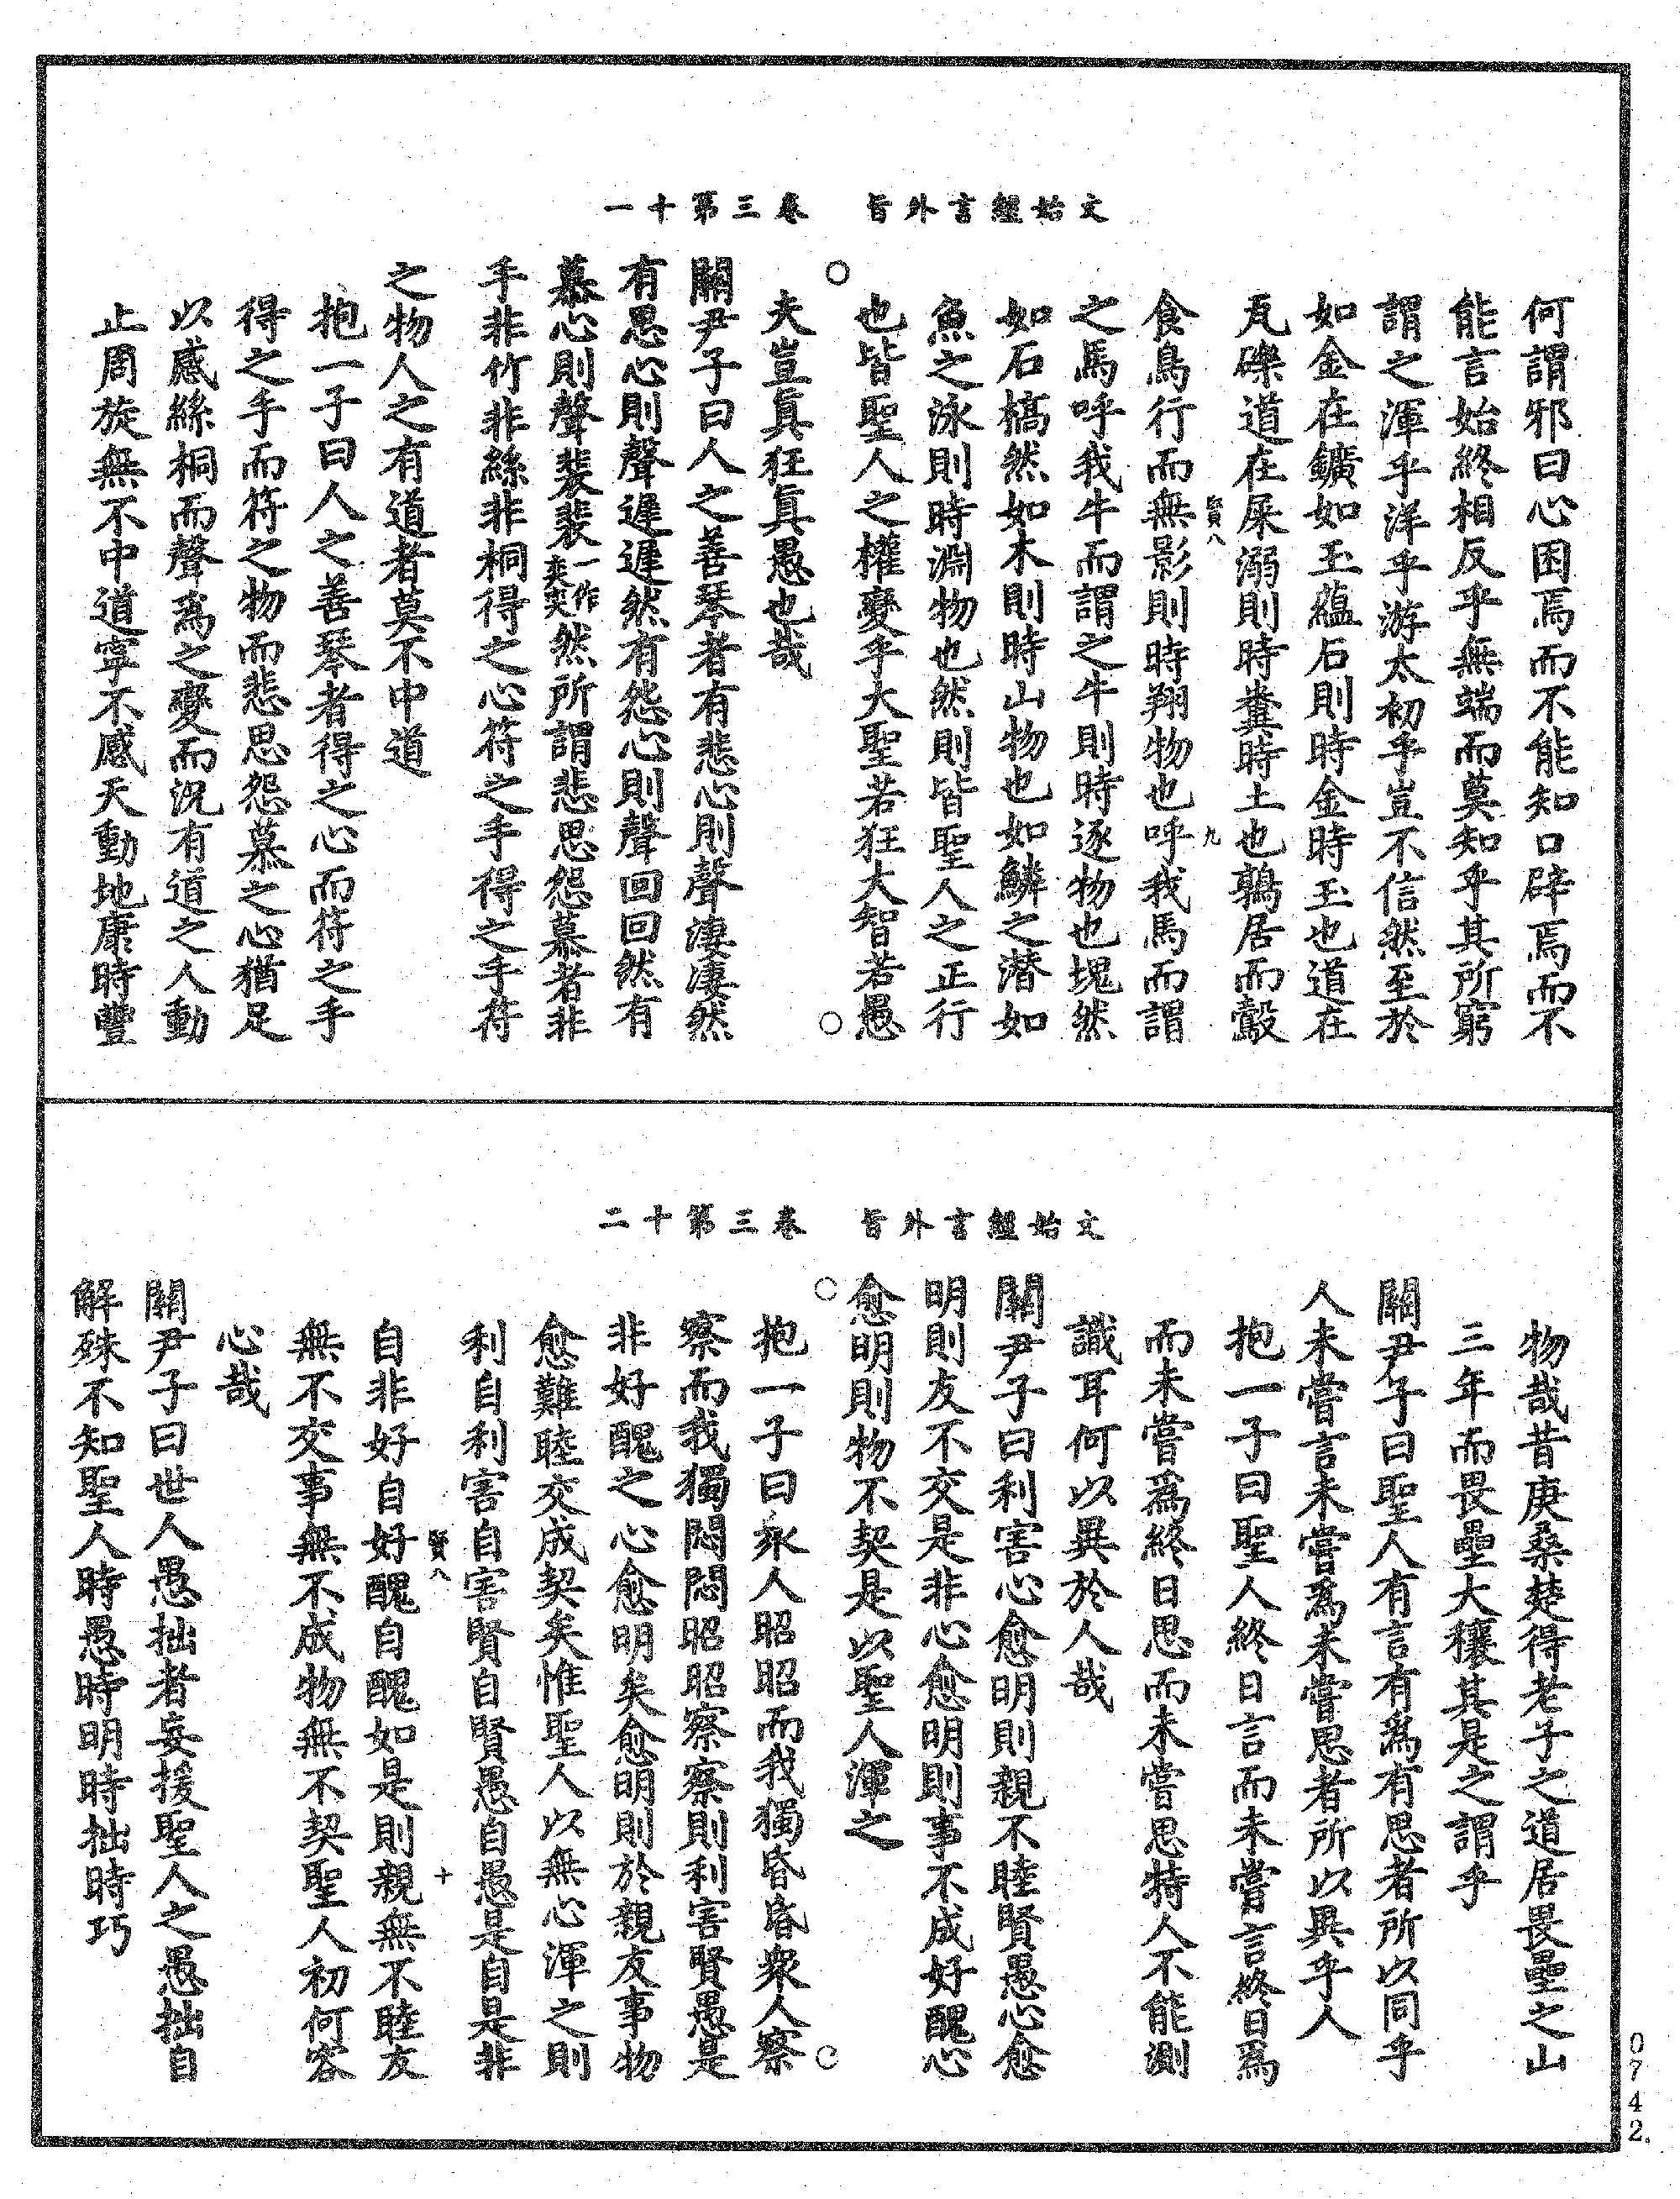 文始經言外旨　卷三第十一
何謂邪曰心困焉而不能知口辟焉而不
能言始終相反乎無端而莫知乎其所窮
謂之渾乎洋乎游太初乎豈不信然至於
如金在鑛如玉蘊石則時金時玉也道在
瓦礫道在屎溺則時糞時土也鶉居而鷇
賢八　九
食鳥行而無影則時翔物也呼我馬而謂
之馬呼我牛而謂之牛則時逐物也塊然
如石槁然如木則時山物也如鱗之潛如
魚之泳則時淵物也然則皆聖人之正行
也皆聖人之權變乎大聖若狂大智若愚
夫豈眞狂眞愚也哉
關尹子曰人之善琴者有悲心則聲淒淒然
有思心則聲遲遲然有怨心則聲回回然有
慕心則聲裴裴一作奕奕然所謂悲思怨慕者非
手非竹非絲非桐得之心符之手得之手符
之物人之有道者莫不中道
抱一子曰人之善琴者得之心而符之手
得之手而符之物而悲思怨慕之心猶足
以感絲桐而聲爲之變而況有道之人動
止周旋無不中道寧不感天動地康時豐
文始經言外旨　卷三第十二
物哉昔庚桑楚得老子之道居畏壘之山
三年而畏壘大穰其是之謂乎
關尹子曰聖人有言有爲有思者所以同乎
人未嘗言未嘗爲未嘗思者所以異乎人
抱一子曰聖人終日言而未嘗言終日爲
而未嘗爲終日思而未嘗思特人不能測
識耳何以異於人哉
關尹子曰利害心愈明則親不睦賢愚心愈
明則友不交是非心愈明則事不成好醜心
愈明則物不契是以聖人渾之
抱一子曰衆人昭昭而我獨昏昏衆人察
察而我獨悶悶昭昭察察則利害賢愚是
非好醜之心愈明矣愈明則於親友事物
愈難睦交成契矣惟聖人以無心渾之則
利自利害自害賢自賢愚自愚是自是非
賢八　十
自非好自好醜自醜如是則親無不睦友
無不交事無不成物無不契聖人初何容
心哉
關尹子曰世人愚拙者妄援聖人之愚拙自
解殊不知聖人時愚時明時拙時巧
0742